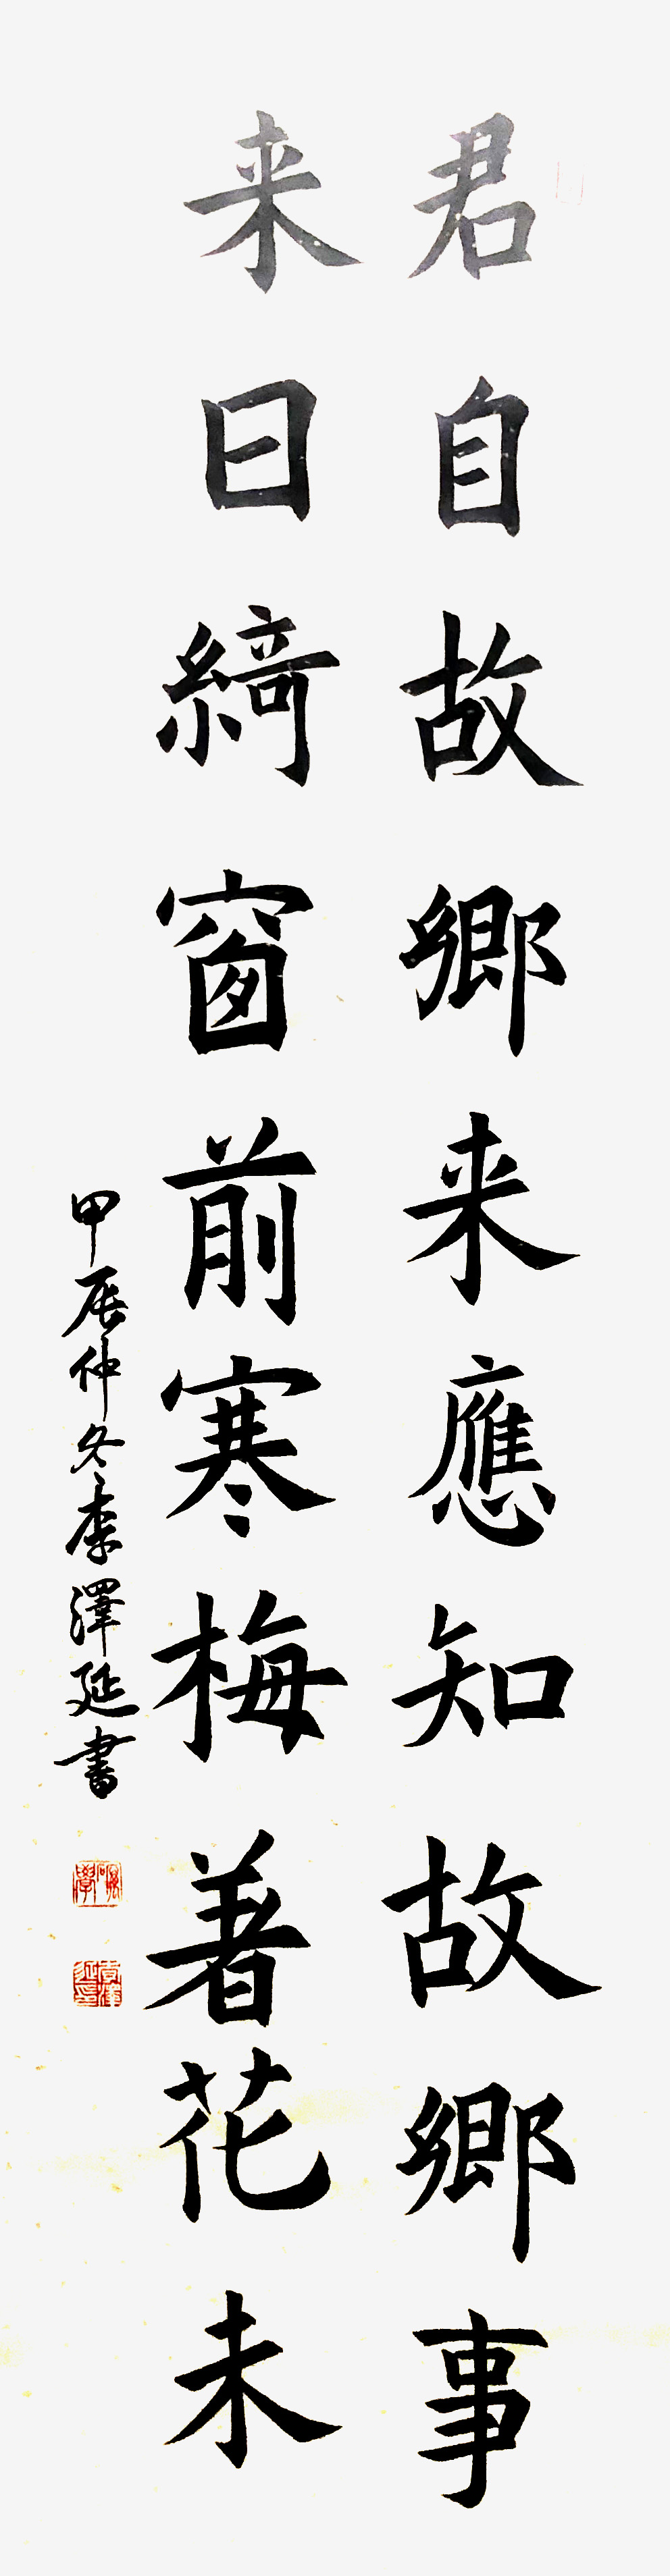 君自故鄉来應知故鄉事
来日綺窗前寒梅著花未
甲辰仲冬李澤延書